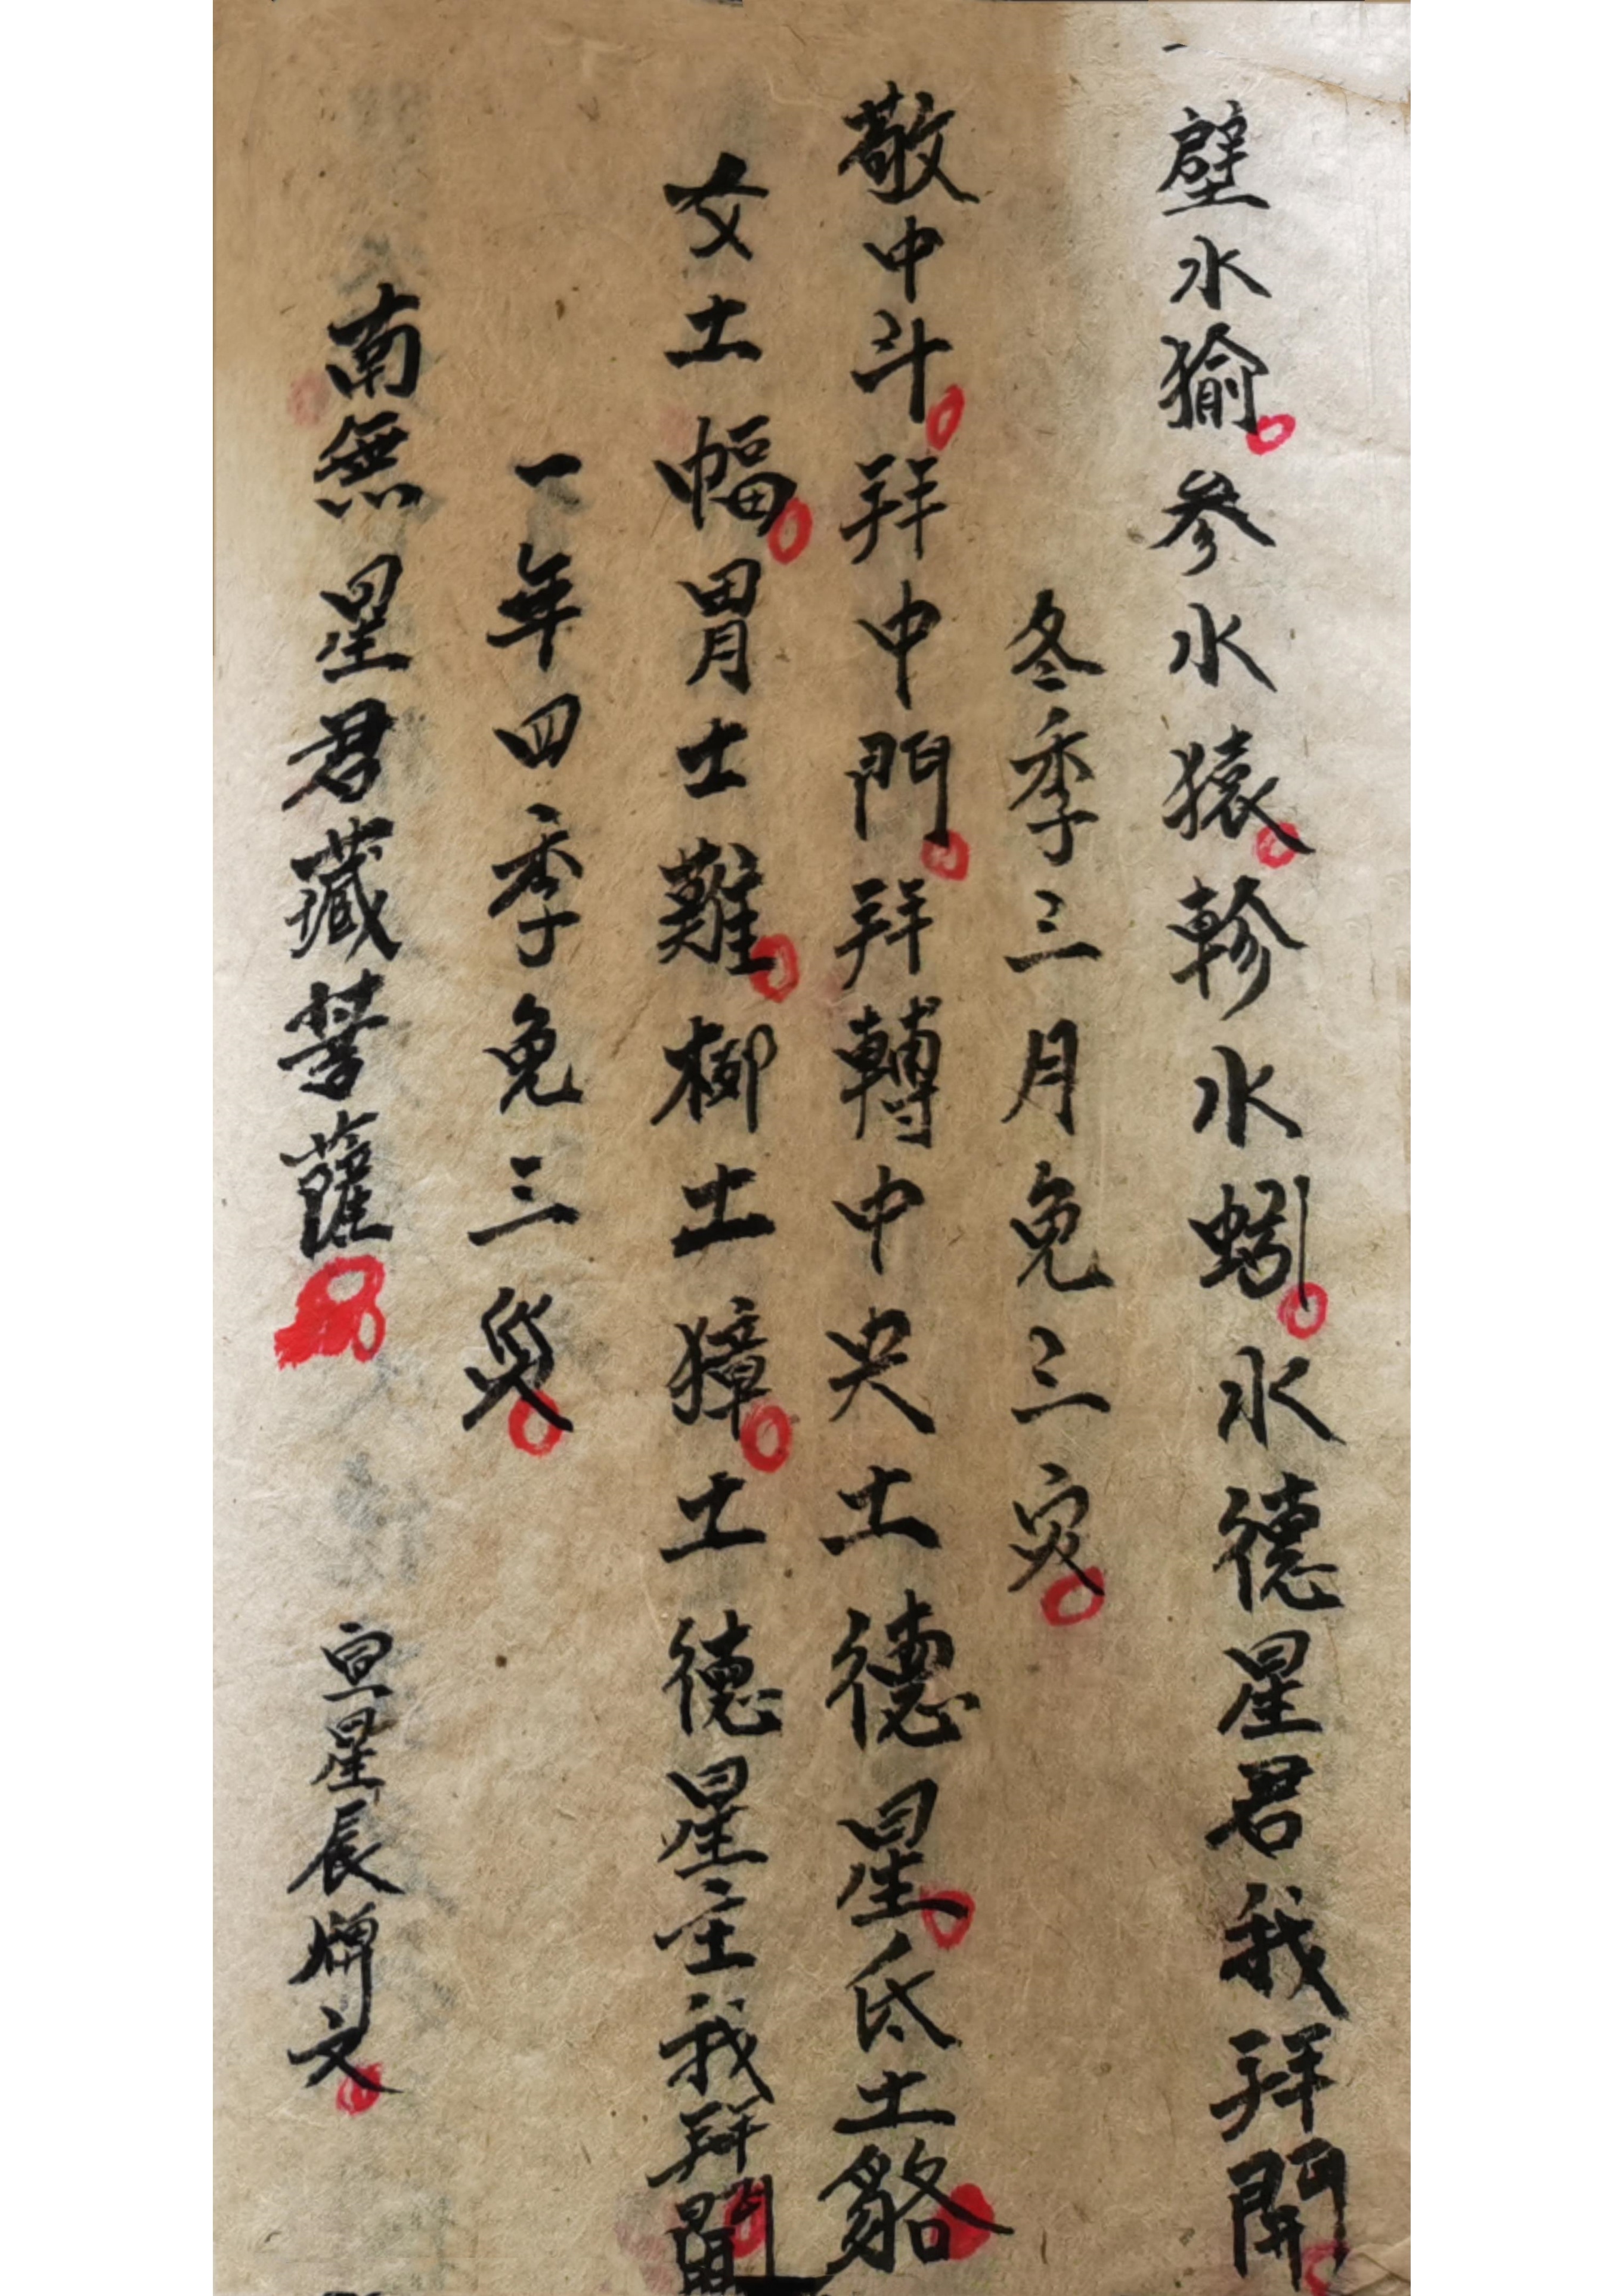 壁水㺄参水猿軫水蚓水德星君我拜開
冬季三月免三灾
敬中斗拜中門拜轉中央土德星氐土貉
女土幅胃士難柳土獐土德星主我拜開
一年四季免三災
南無星君藏菩薩
宣星辰牌文